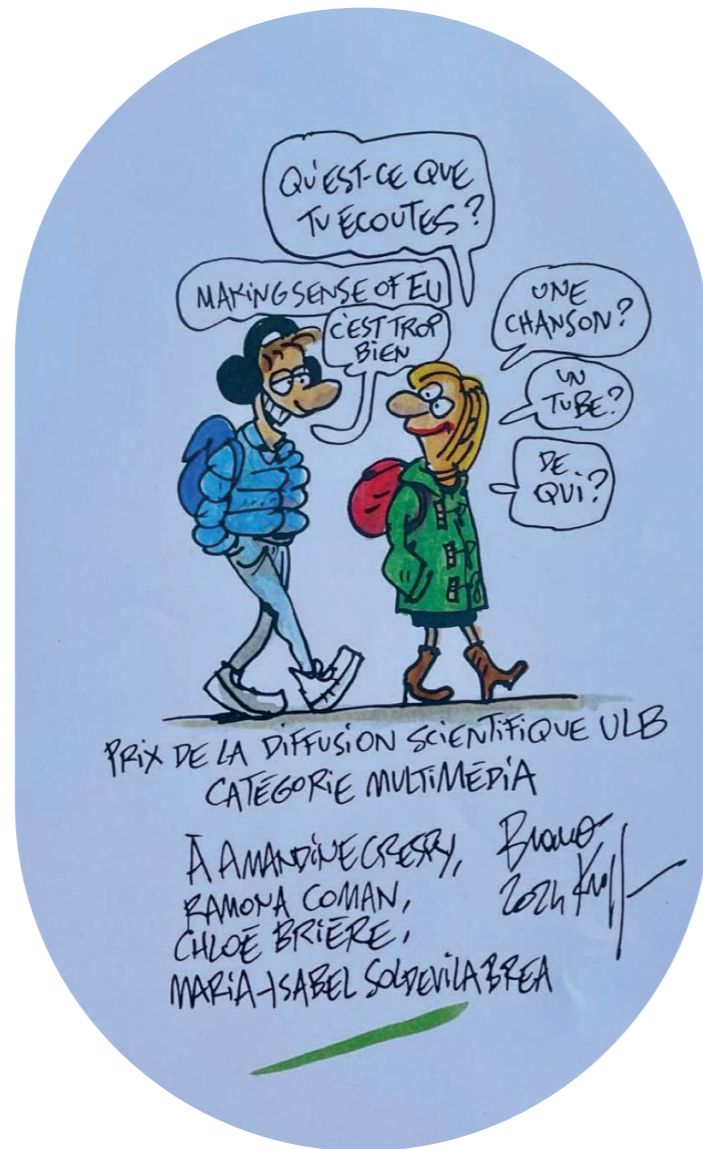 QU'EST-CE QUE
TU ÉCOUTES?
MAKING SENSE OF EU
C'EST TROP
BIEN
UNE
CHANSON?
UN
TUBE?
DE
QUI?
PRIX DE LA DIFFUSION SCIENTIFIQUE ULB
CATÉGORIE MULTIMÉDIA
À AMANDINE CRESPY,
RAMONA COMAN,
CHLOÉ BRIÈRE,
MARIA-ISABEL SOLDEVILA BREA
Bravo
2024 Kroll